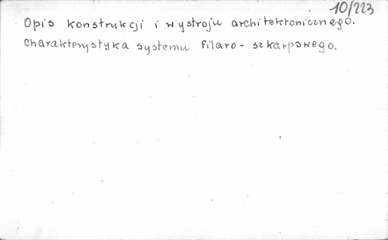 10/223
Opis konstrukcji i wystroju architektonicznego.
Charakterystyka systemu filaro - szkarpowego.